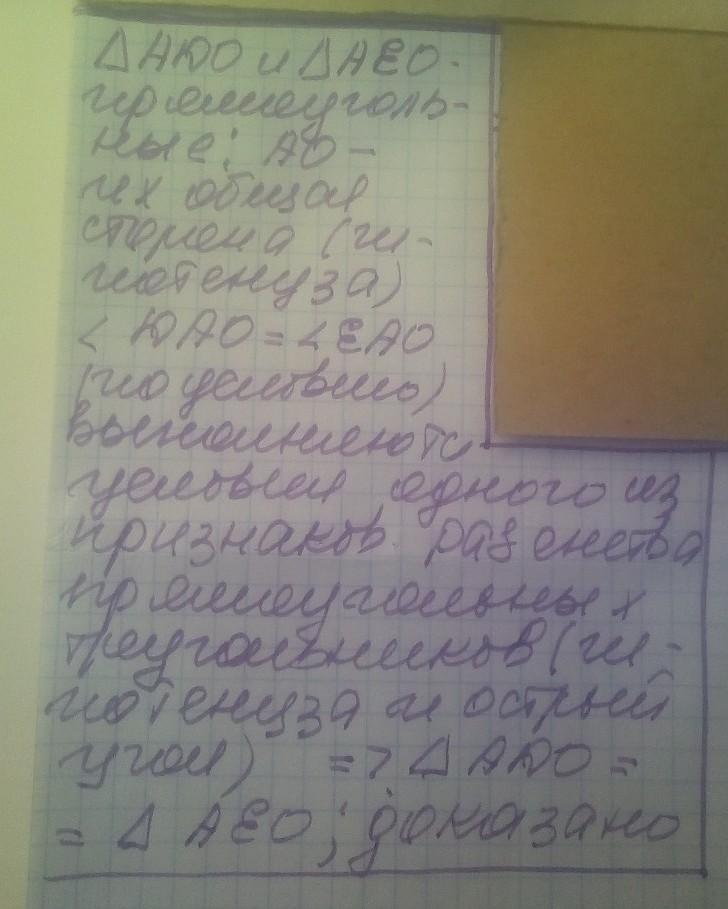 △АДО и △АЕО -
прямоуголь-
ные: АО -
их общая
сторона (ги-
потенуза)
< DАО = < ЕАО
(по условию)
выполняются
условия одного из
признаков равенства
прямоугольных
треугольников (ги-
потенуза и острый
угол) => △ АДО =
= △ АЕО; доказано